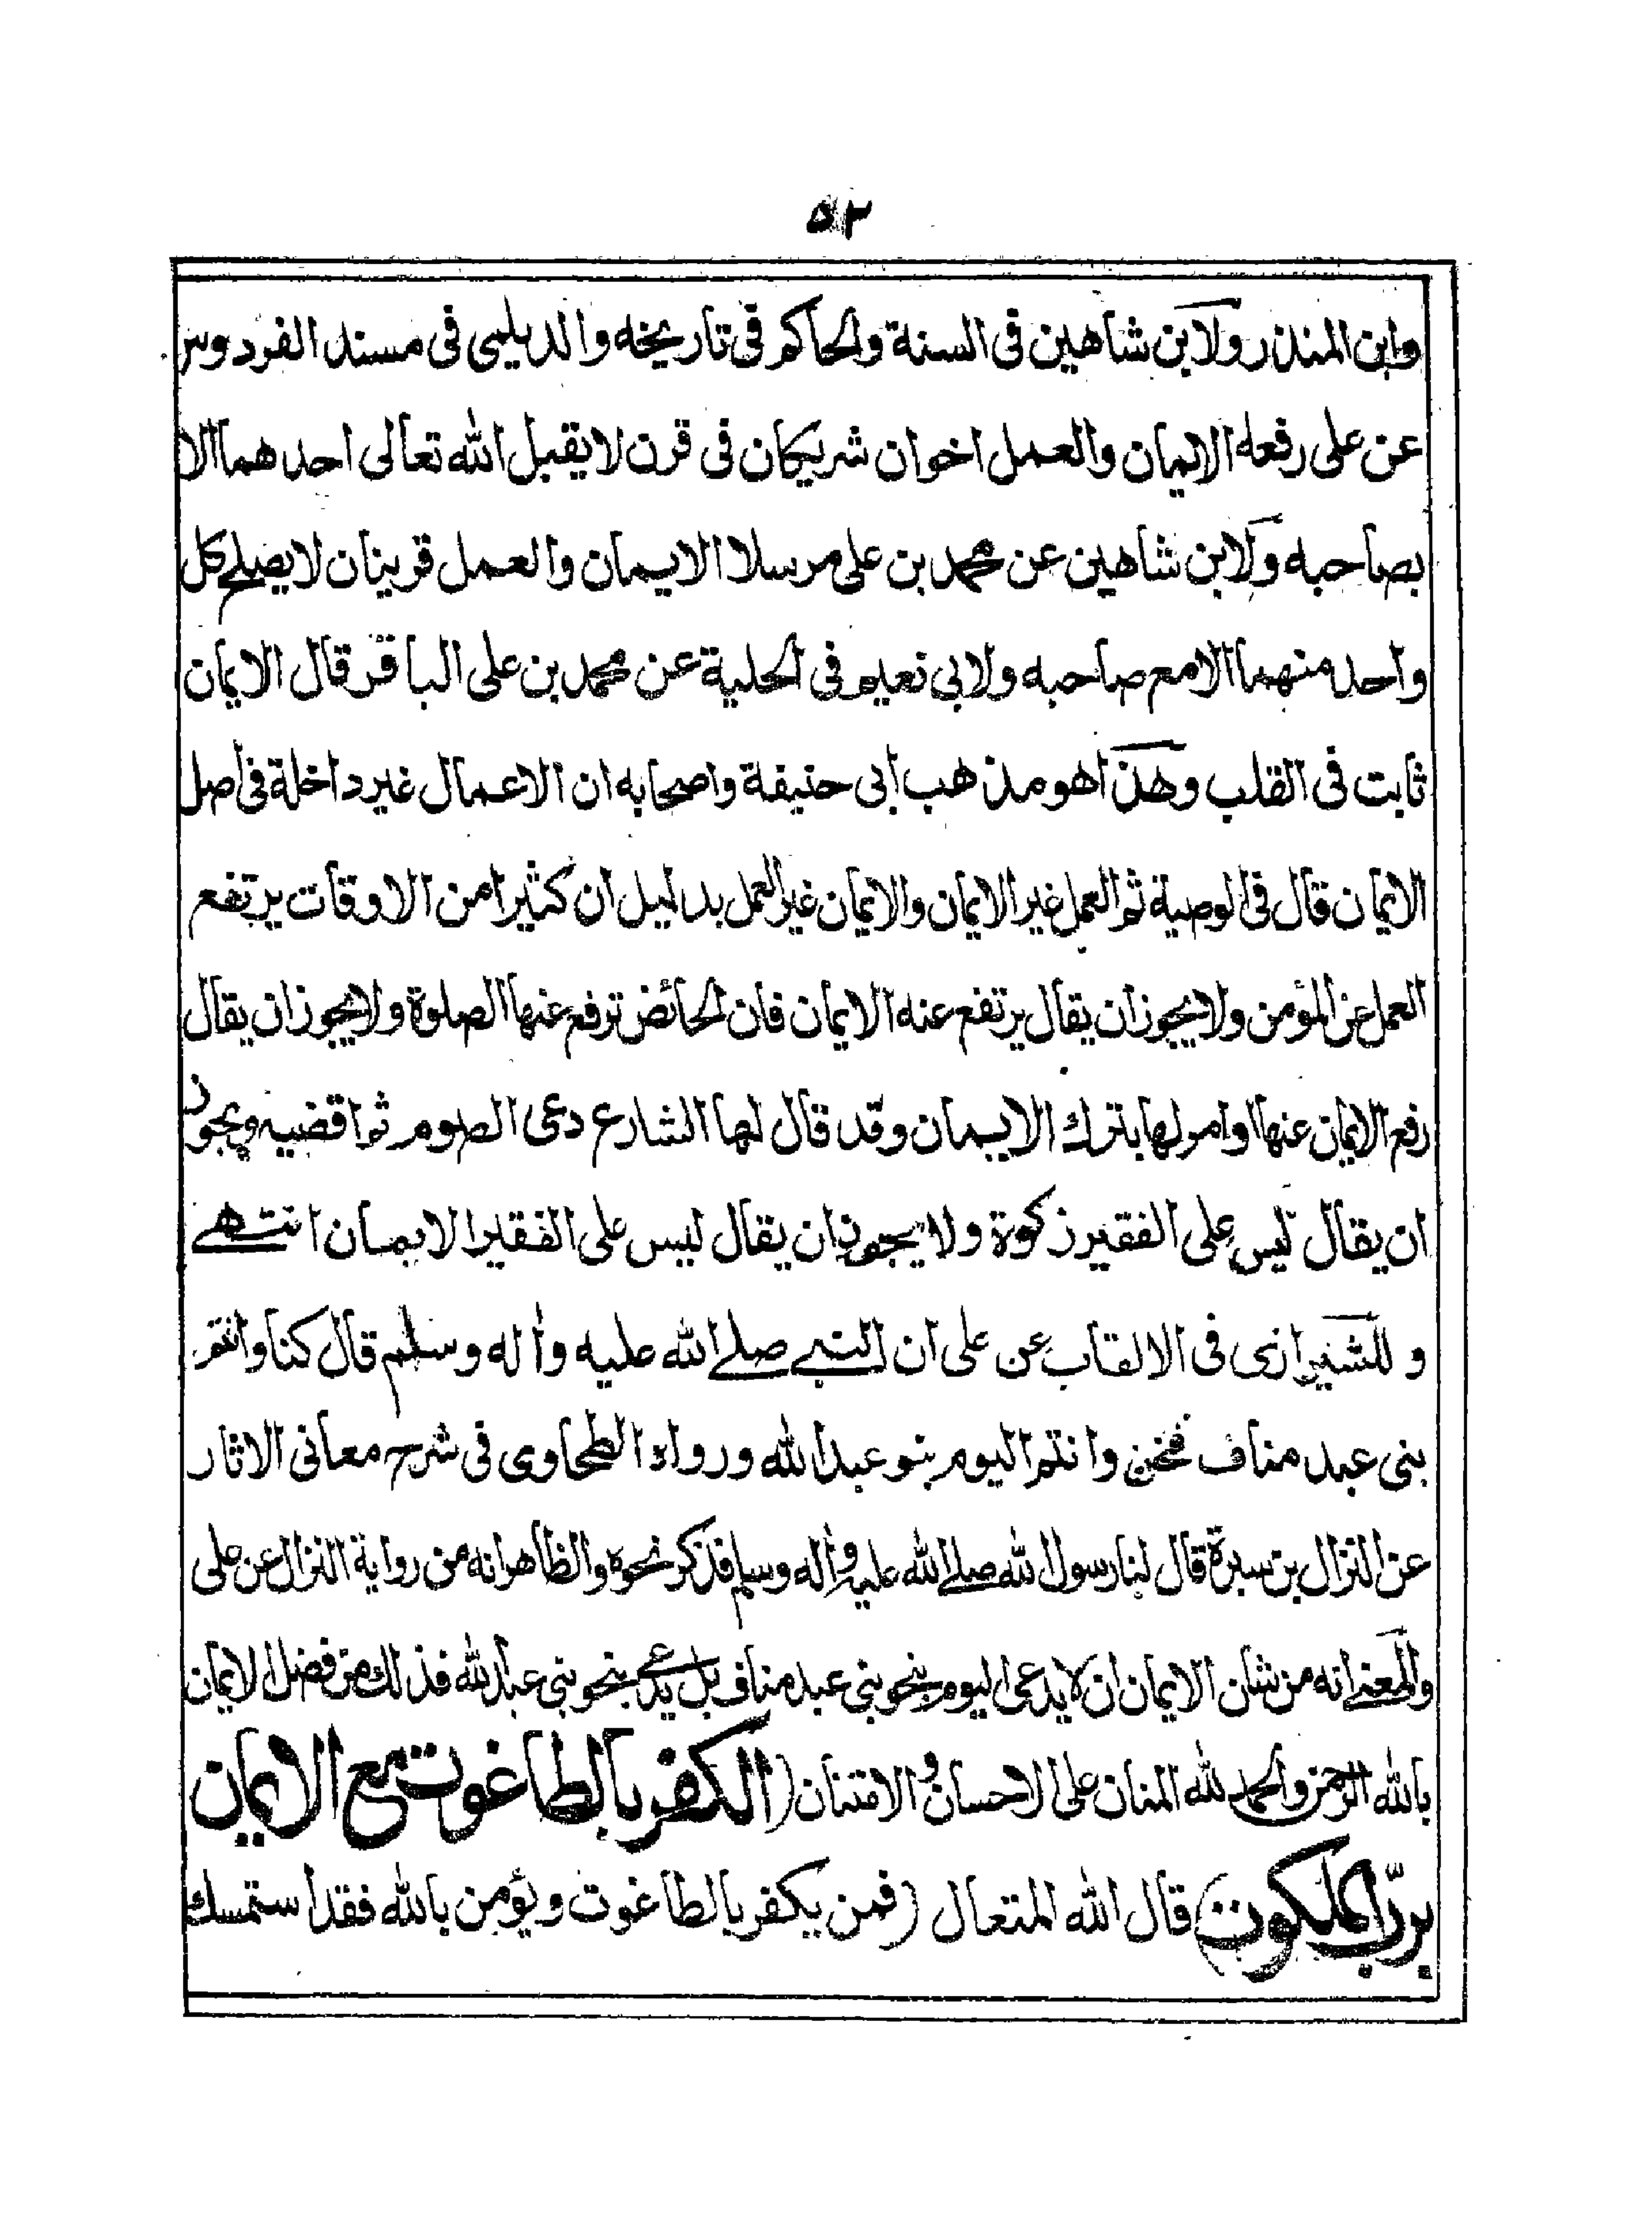 ٥٢
وابن المنذر ولابن شاهين في السنة والحاكم في تاريخه والديلمي في مسند الفردوس
عن علي رفعه الايمان والعمل اخوان شريكان في قرن لا يقبل الله تعالى احدهما الا
بصاحبه ولابن شاهين عن محمد بن علي مرسلا الايمان والعمل قرينان لا يصلح كل
واحد منهما الا مع صاحبه ولابي نعيم في الحلية عن محمد بن علي الباقر قال الايمان
ثابت في القلب وهذا هو مذهب أبي حنيفة واصحابه ان الاعمال غير داخلة في اصل
الايمان قال في الوصية ثم العمل غير الايمان والايمان غير العمل بدليل ان كثيرا من الاوقات يرتفع
العمل عن المؤمن ولا يجوز ان يقال يرتفع عنه الايمان فان الحائض ترفع عنها الصلوة ولا يجوز ان يقال
رفع الايمان عنها وامر لها بترك الايمان وقد قال لها الشارع دعى الصوم ثم اقضيه ويجوز
ان يقال ليس على الفقير زكوة ولا يجوز ان يقال ليس على الفقير الايمان انتهى
وللشيرازى في الالقاب عن علي ان النبي صلى الله عليه وأله وسلم قال كنا وانتم
بني عبد مناف فنحن وانتم اليوم بنو عبد الله ورواه الطحاوي في شرح معاني الاثار
عن النزال بن سبرة قال لنا رسول الله صلى الله عليه وأله وسلم فذكر نحوه والظاهر انه من رواية النزال عن علي
والمعنى انه من شان الايمان ان لا يدعى اليوم بنحو بني عبد مناف بل يدعى بنحو بني عبد الله فذلك من فضل الايمان
بالله الرحمن والحمد لله المنان على الاحسان والامتنان (الكفر بالطاغوت مع الايمان
بربّ الملكوت) قال الله المتعال (فمن يكفر بالطاغوت ويؤمن بالله فقد استمسك